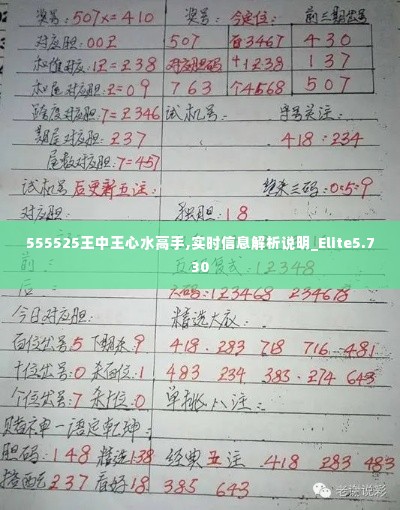 奖号:507x=410 奖号: 今定位: 前三期奖号
对应胆:00又 507 百3467 430
对应胆码 十1238 137
763 个4568 507
跨度对应胆:7=2346 试机号: 字号关注:
期尾对应胆:237 418:234
尾数对应胆:7=457
试机号后更新五注: 绝杀三码:0:5:9
对应胆: 独胆:18
555525王中王心水高手,实时信息解析说明_Elite5.7
30
前: 五码复式:12348
后: 六码:123468 234678
今日对应胆: 精选六友:
百位奖号5下期杀9 418.283 718 716-481
十位奖号:0 杀百位:1 483 234 383-274 643
个位奖号:7 杀十位:0 单挑八注:
赌神一语定乾坤:
胆码:148 精选138 经典五注.418 283 483
237 看好18 385 643
老谢说彩